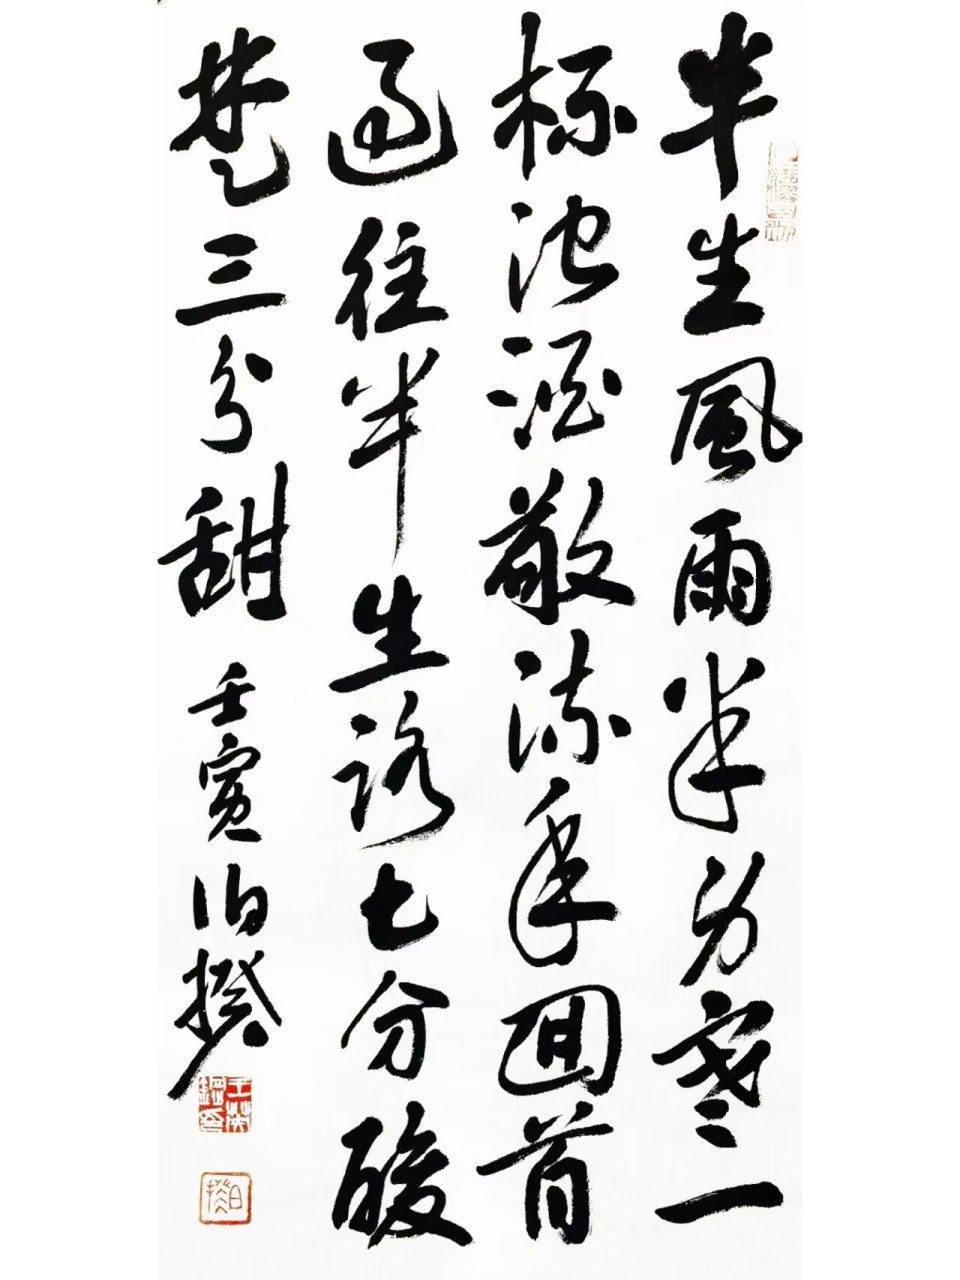 半生風雨半身寒一
杯濁酒敬流年囬首
過往半生路七分酸
楚三分甜 壬寅伯揆